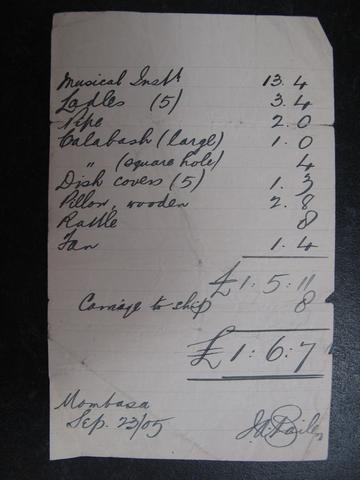 Musical Instt 13. 4
Ladles (5) 3. 4
Pipe 2. 0
Calabash (large) 1. 0
" (square hole) 4
Dish covers (5) 1. 3
Pillow, wooden 2. 8
Rattle 8
Fan 1. 4
£1: 5: 11
Carriage to ship 8
£1: 6: 7
Mombasa
Sep. 23/05